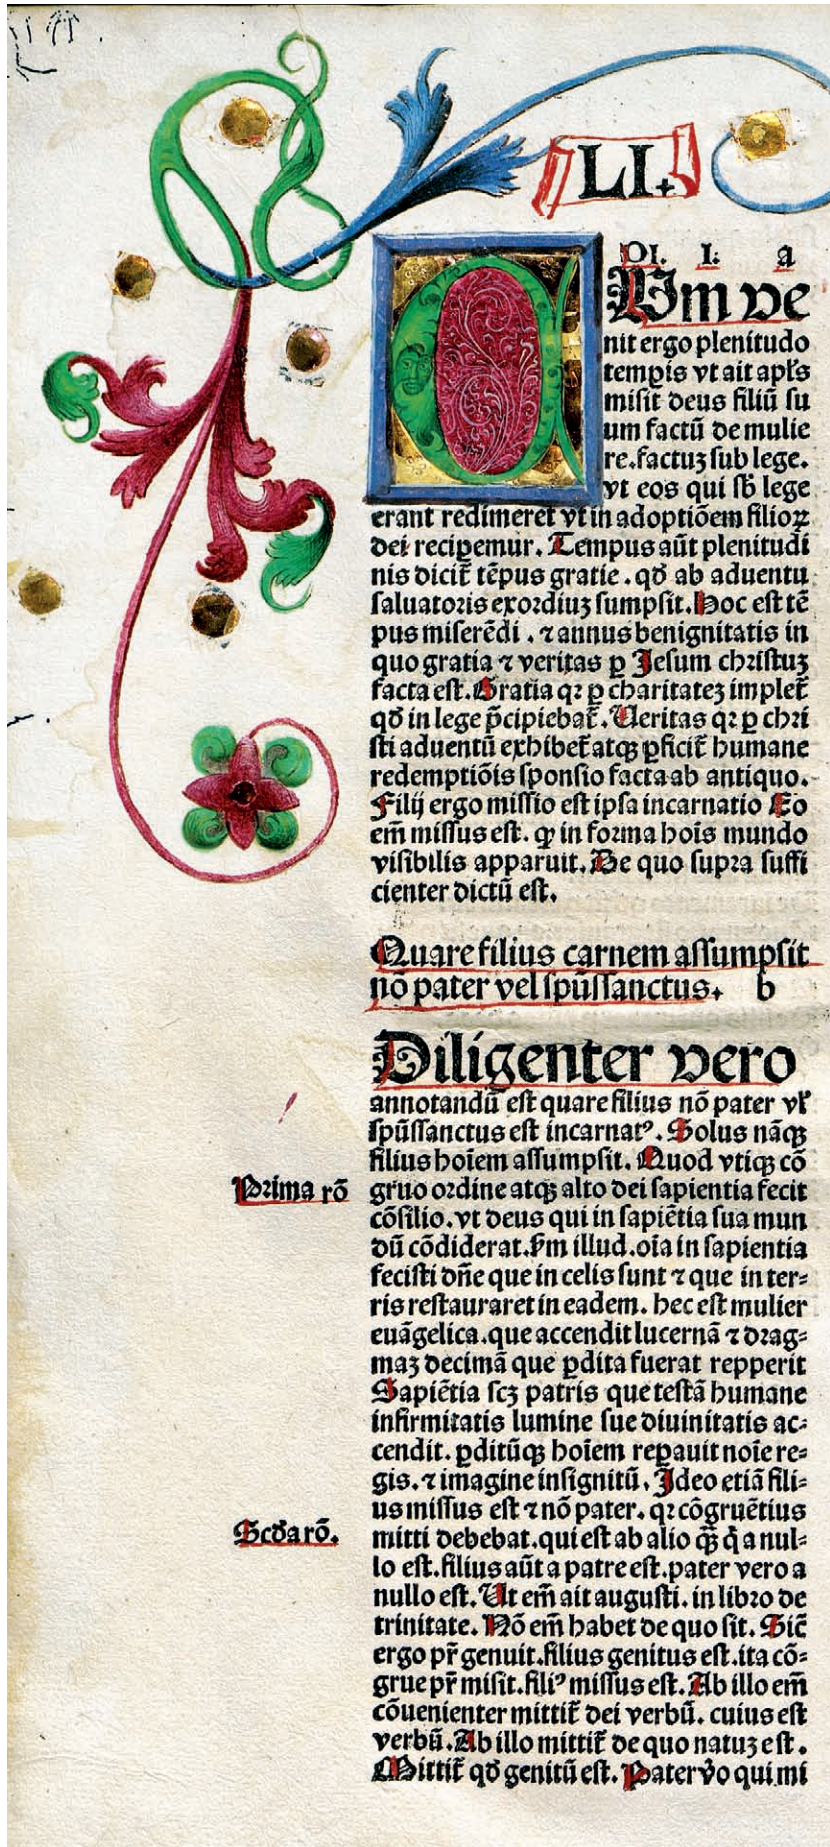 LI.
DI. I. a
Cum ve
nit ergo plenitudo
temꝑis vt ait apl's
misit deus filiū su
um factū de mulie
re.factuꝫ sub lege.
vt eos qui sb̄ lege
erant redimeret vt in adoptiōem filioꝝ
dei reciꝑemur. Tempus aūt plenitudi
nis dicit̄ tēpus gratie. qd̄ ab aduentu
saluatoris exordiuꝫ sumpsit. Hoc est tē
pus miserēdi. ⁊ annus benignitatis in
quo gratia ⁊ veritas ꝑ Jesum christuꝫ
facta est. Gratia qꝛ ꝑ charitateꝫ implet̄
qd̄ in lege p̄cipiebat̄. Veritas qꝛ ꝑ chri
sti aduentū exhibet̄ atqꝫ ꝑficit̄ humane
redemptiōis sponsio facta ab antiquo.
Filij ergo missio est ipsa incarnatio Eo
em̄ missus est. ꝙ in forma hoīs mundo
visibilis apparuit. De quo supra suffi
cienter dictū est.
Quare filius carnem assumpsit
nō pater vel spūssanctus. b
Diligenter vero
annotandū est quare filius nō pater vl'
spūssanctus est incarnatꝰ. Solus nāqꝫ
filius hoīem assumpsit. Quod vtiqꝫ cō
Prima rō
gruo ordine atqꝫ alto dei sapientia fecit
cōsilio. vt deus qui in sapiētia sua mun
dū cōdiderat. ẜm illud. oīa in sapientia
fecisti dn̄e que in celis sunt ⁊ que in ter⸗
ris restauraret in eadem. hec est mulier
euāgelica. que accendit lucernā ⁊ drag⸗
maꝫ decimā que ꝑdita fuerat repperit
Sapiētia scꝫ patris que testā humane
infirmitatis lumine sue diuinitatis ac⸗
cendit. ꝑditūqꝫ hoīem reꝑauit noīe re⸗
gis. ⁊ imagine insignitū. Ideo etiā fili⸗
us missus est ⁊ nō pater. qꝛ cōgruētius
Scd̄a rō.
mitti debebat. qui est ab alio qꝫ̄ q̄ a nul⸗
lo est. filius aūt a patre est. pater vero a
nullo est. Ut em̄ ait augusti. in libro de
trinitate. Nō em̄ habet de quo sit. Sic̄
ergo pr̄ genuit. filius genitus est. ita cō⸗
grue pr̄ misit. filiꝰ missus est. Ab illo em̄
cōuenienter mittit̄ dei verbū. cuius est
verbū. Ab illo mittit̄ de quo natuꝫ est.
Mittit̄ qd̄ genitū est. Pater v̊o qui mi